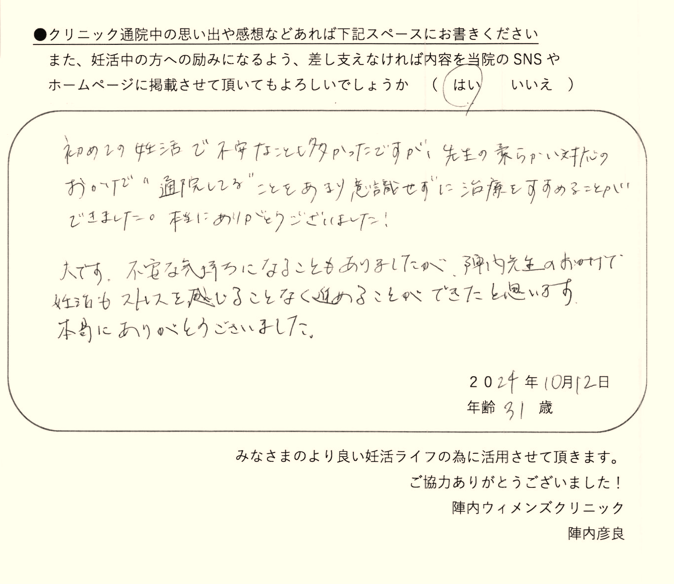 ●クリニック通院中の思い出や感想などあれば下記スペースにお書きください
また、妊活中の方への励みになるよう、差し支えなければ内容を当院のSNSや
ホームページに掲載させて頂いてもよろしいでしょうか （ はい いいえ ）
初めての妊活で不安なことも多かったですが、先生の柔らかい対応の
おかげで"通院してる"ことをあまり意識せずに治療をすすめることが
できました。本当にありがとうございました！
夫です。不安な気持ちになることもありましたが、陣内先生のおかげで
妊活もストスを感じることなく進めることができたと思います。
本当にありがとうございました。
2024年10月12日
年齢 31 歳
みなさまのより良い妊活ライフの為に活用させて頂きます。
ご協力ありがとうございました！
陣内ウィメンズクリニック
陣内彦良